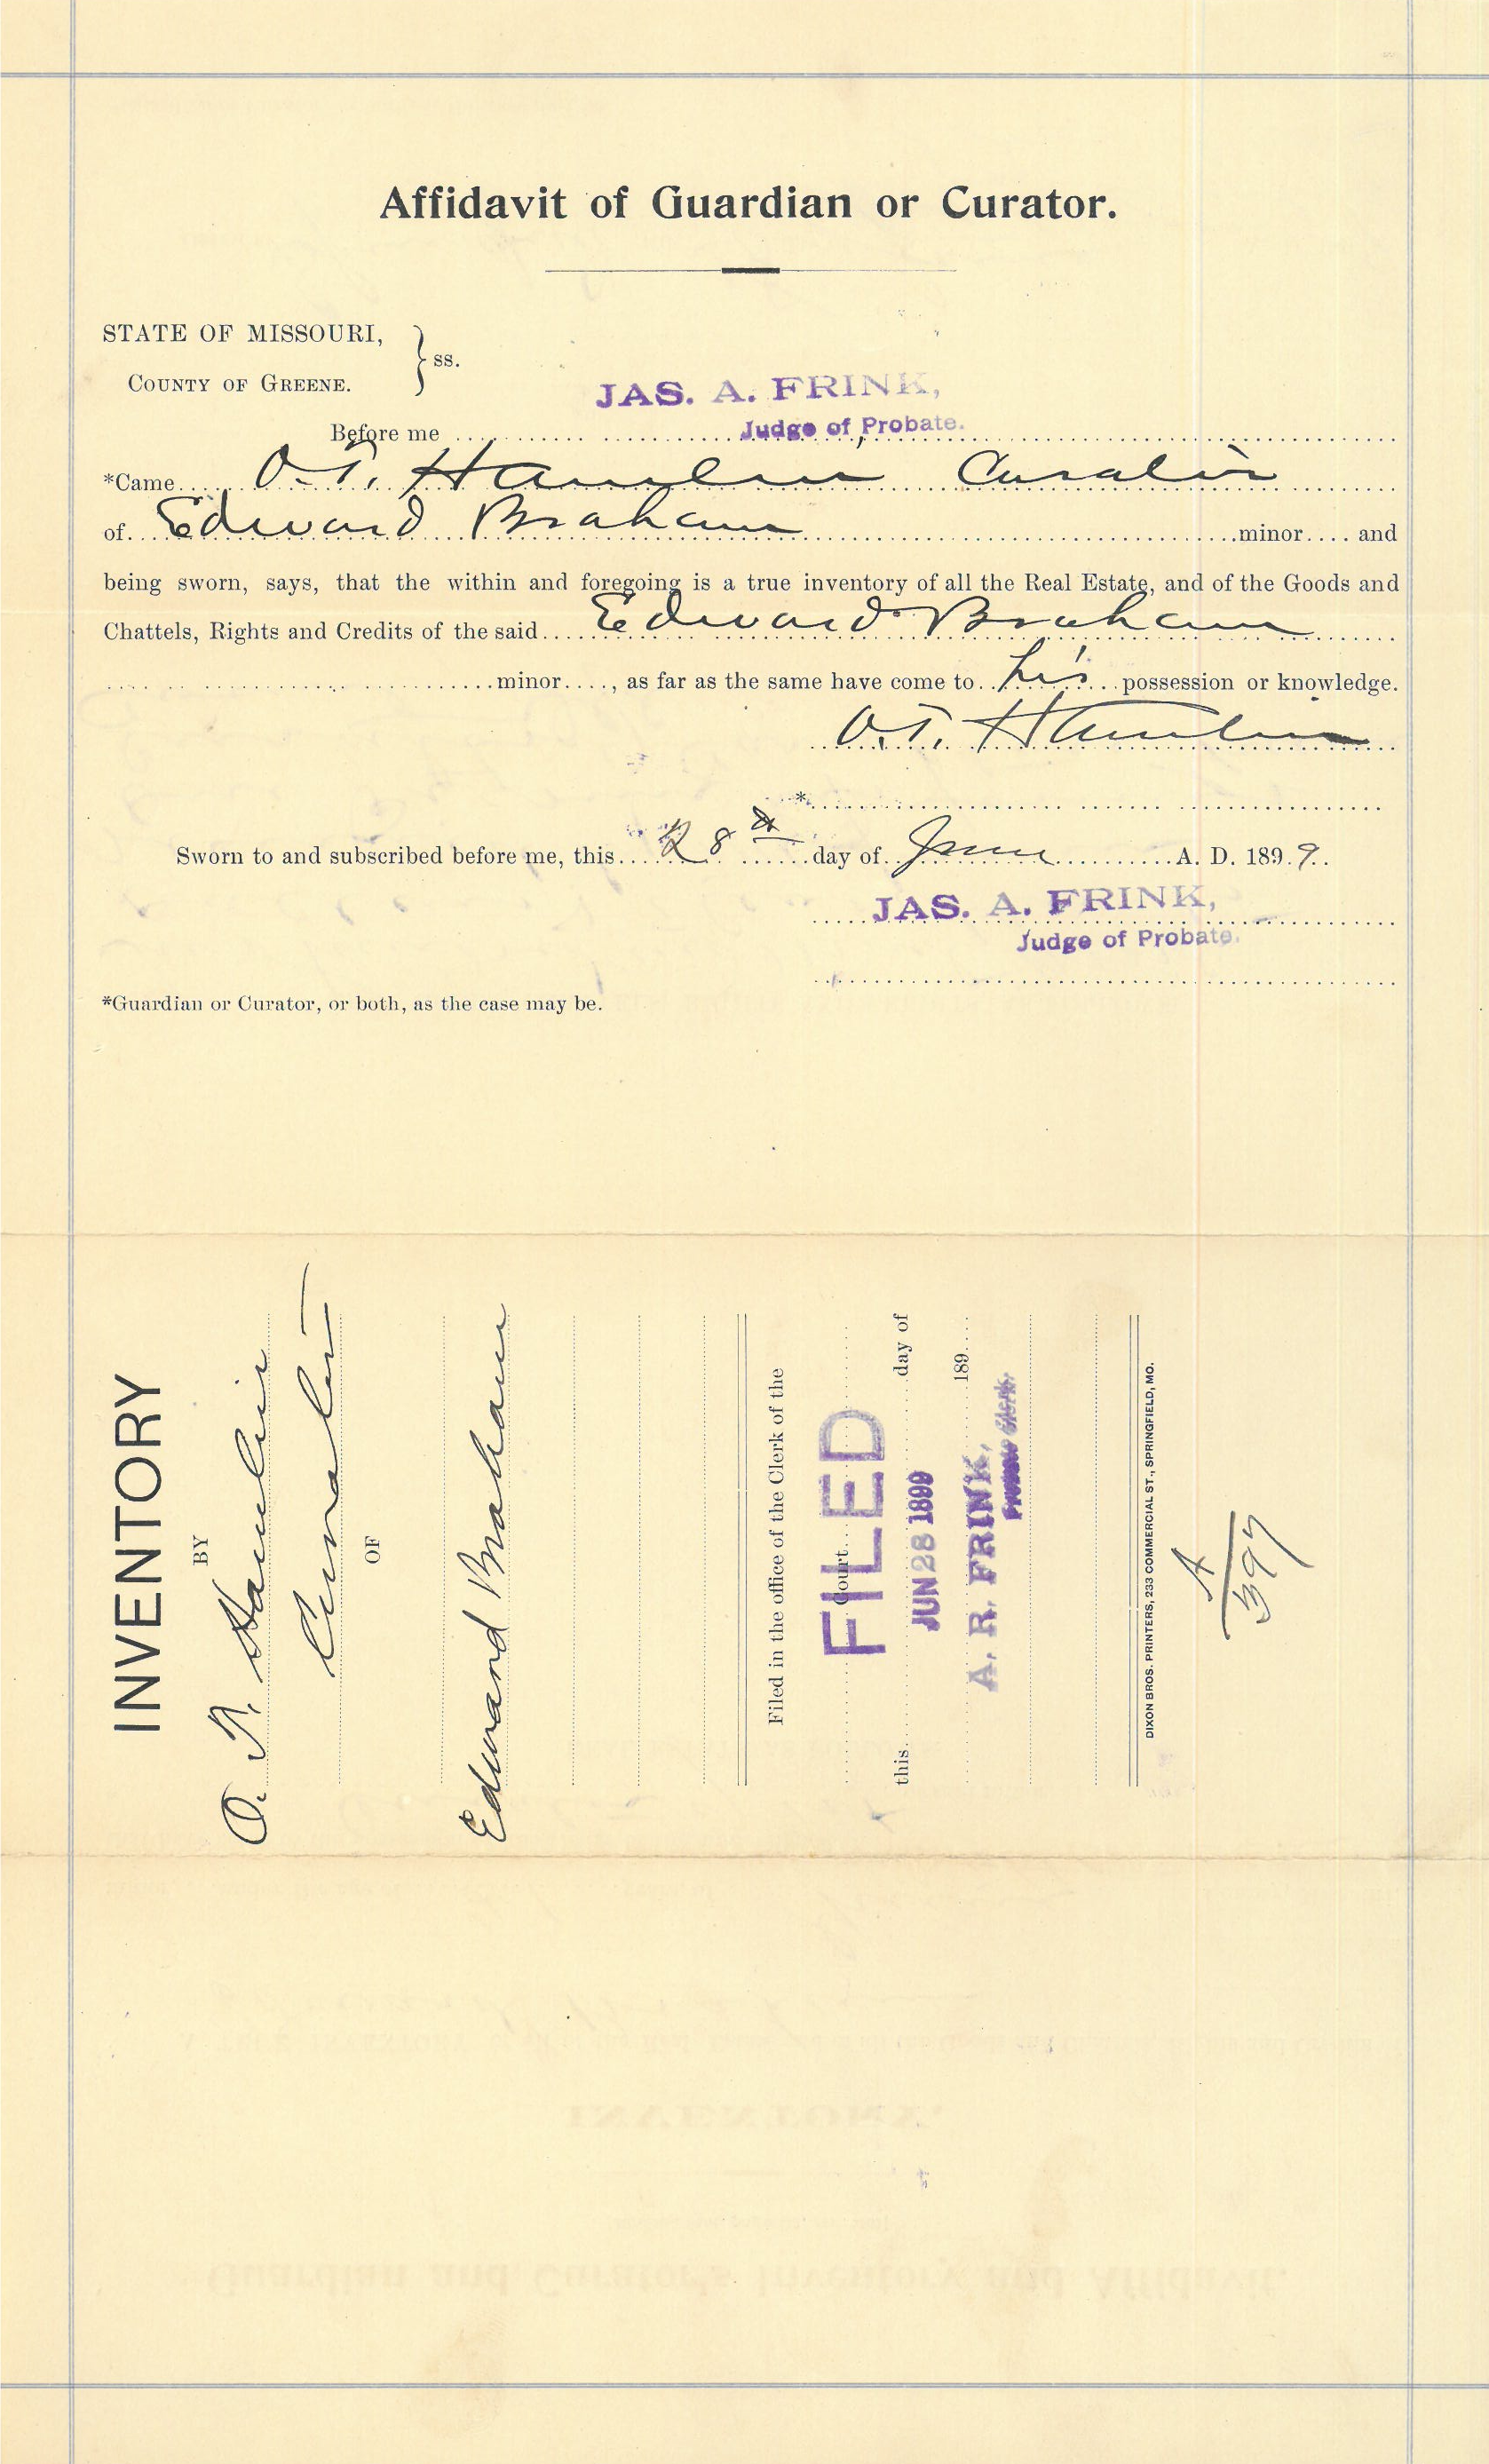 Affidavit of Guardian or Curator.
STATE OF MISSOURI,
COUNTY OF GREENE.
} ss.
JAS. A. FRINK,
Judge of Probate.
Before me
*Came O. T. Hamlin Curator
of Edward Braham minor.... and
being sworn, says, that the within and foregoing is a true inventory of all the Real Estate, and of the Goods and
Chattels, Rights and Credits of the said Edward Braham
minor...., as far as the same have come to his possession or knowledge.
O.T. Hamlin
*
Sworn to and subscribed before me, this 28th day of June A. D. 1899.
JAS. A. FRINK,
Judge of Probate.
*Guardian or Curator, or both, as the case may be.
INVENTORY
BY
O. T. Hamlin
Curator
OF
Edward Braham
Filed in the office of the Clerk of the
Court
FILED
this day of
JUN 28 1899
189
A. R. FRINK,
DIXON BROS. PRINTERS, 233 COMMERCIAL ST., SPRINGFIELD, MO.
A
397
INVENTORY.
Guardian and Curator's Inventory and Affidavit.